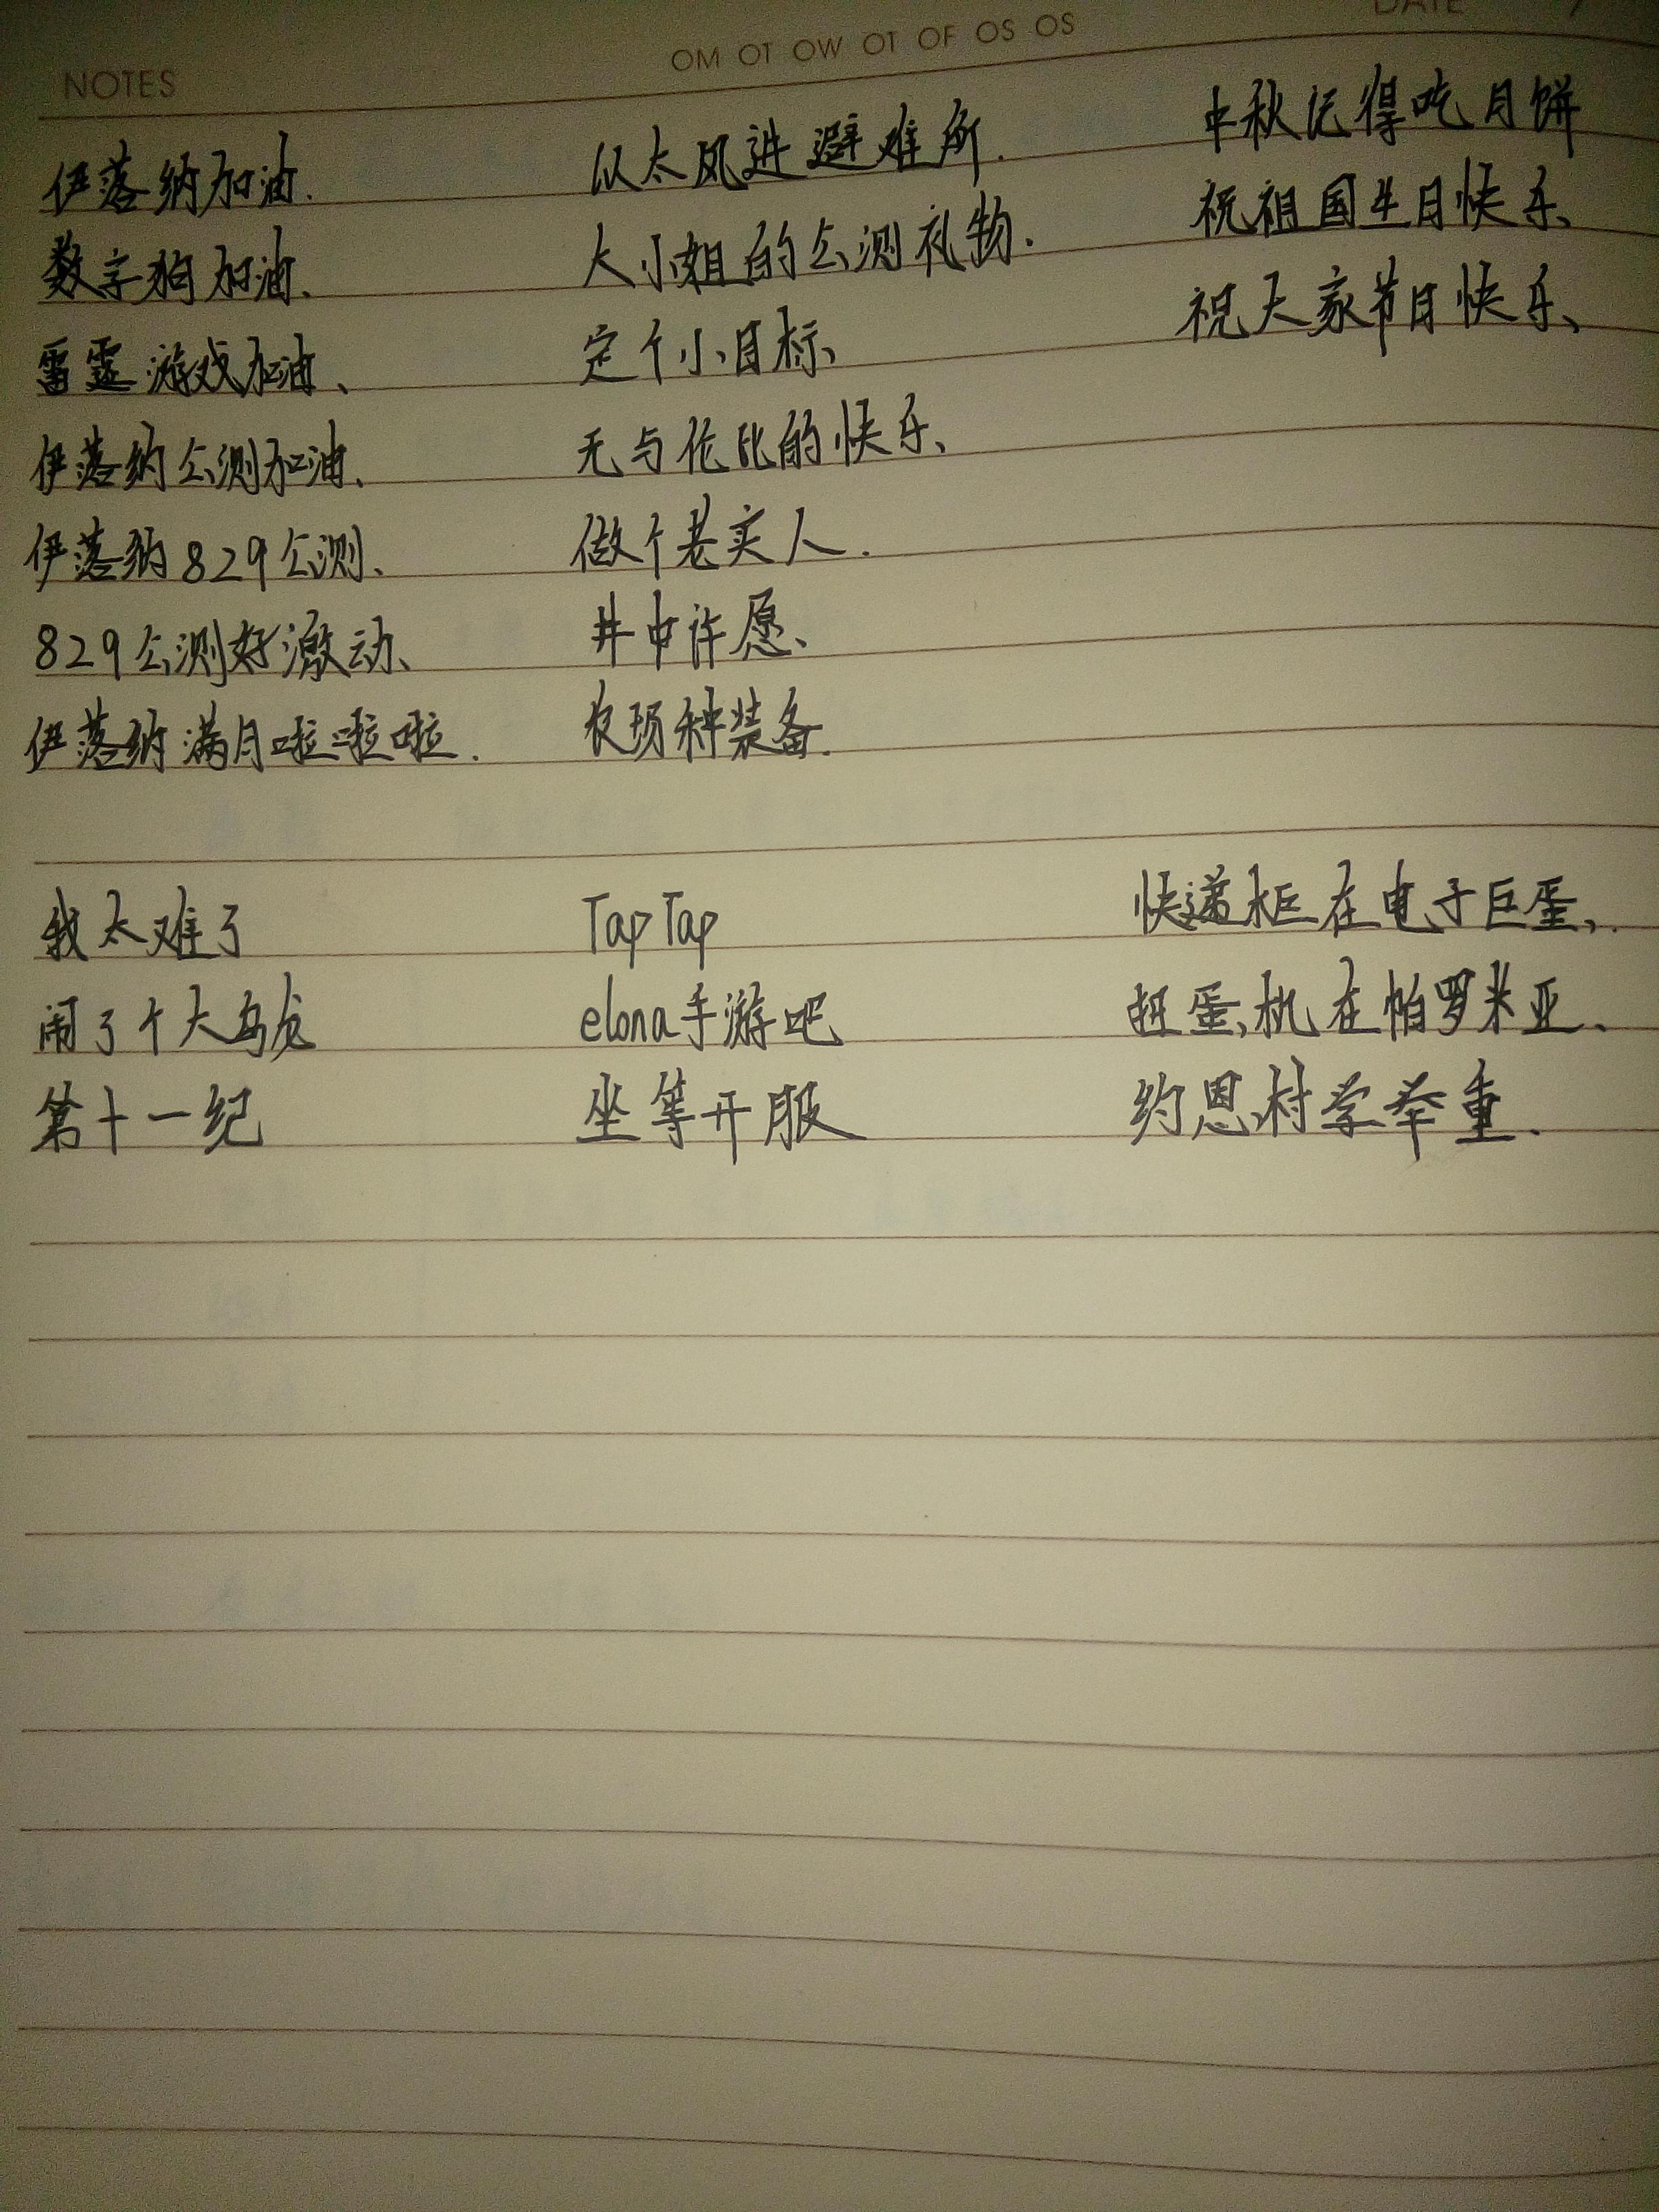 NOTES
OM OT OW OT OF OS OS
DATE /
伊落纳加油.
数字狗加油、
雷霆游戏加油、
伊落纳公测加油、
伊落纳829公测、
829公测好激动、
伊落纳满月啦啦啦.
以太风进避难所.
大小姐的公测礼物.
定个小目标、
无与伦比的快乐、
做个老实人.
井中许愿、
农场种装备.
中秋记得吃月饼
祝祖国生日快乐、
祝大家节日快乐、
我太难了
闹了个大乌龙
第十一纪
TapTap
elona手游吧
坐等开服
快递柜在电子巨蛋、.
扭蛋机在帕罗米亚、
约恩村学举重.